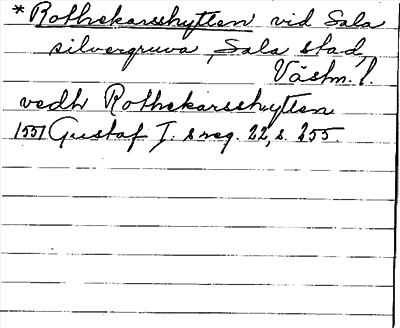 * Rothekarsshytten vid Sala
silvergruva, Sala stad,
Västm. l.
vedh Rothekarsshytten
1551 Gustaf I:s reg. 22, s. 255.